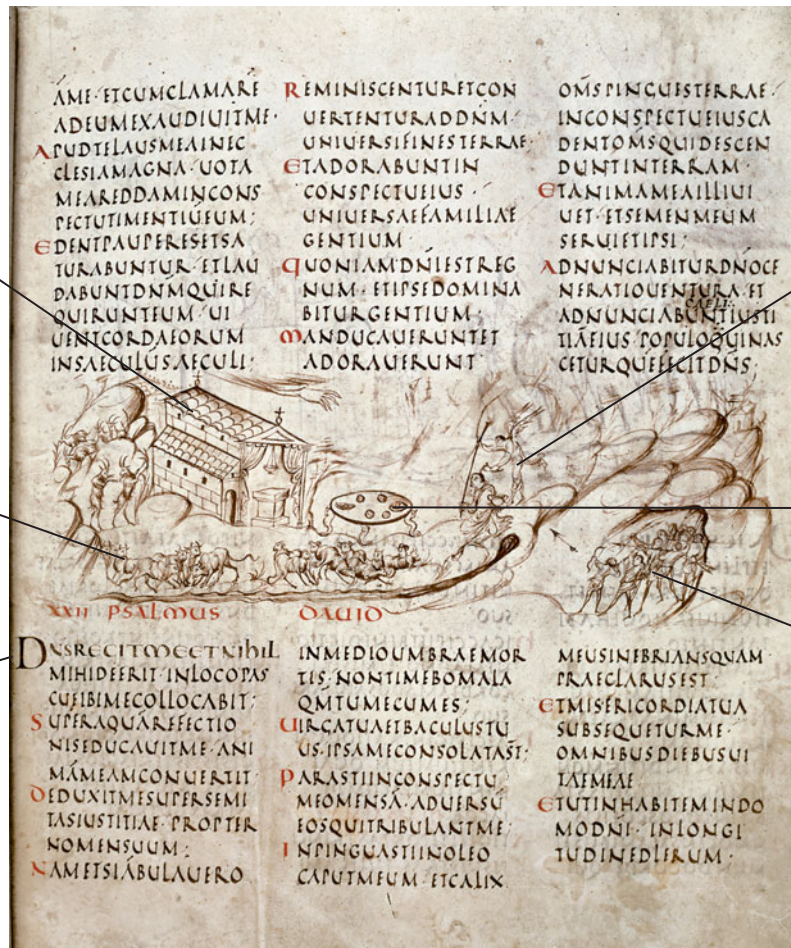 ÁME·ETCUMCLAMARE
ADEUMEXAUDIUITME·
APUDTELAUSMEAINEC
CLESIAMAGNA·UOTA
MEAREDDAMINCONS
PECTUTIMENTIŪEUM;
EDENTPAUPERESETSA
TURABUNTUR·ETLAU
DABUNTDNMQUIRE
QUIRUNTEUM·UI
UENTCORDAEORUM
INSAECULŪSAECULI·
REMINISCENTURETCON
UERTENTURADDNM·
UNIUERSIFINESTERRAE·
ETADORABUNTIN
CONSPECTUEIUS·
UNIUERSAEFAMILIAE
GENTIUM·
QUONIAMDNĪESTREG
NUM·ETIPSEDOMINA
BITURGENTIUM;
MANDUCAUERUNTET
ADORAUERUNT·
OMSPINGUESTERRAE·
INCONSPECTUEIUSCA
DENTOMSQUIDESCEN
DUNTINTERRAM·
ETANIMAMEAILLIUI
UET·ETSEMENMEUM
SERUIETIPSI;
ADNUNCIABITURDNOGE
NERATIOUENTURA·ET
CAELI·
ADNUNCIABUNTIUSTI
TIĀEIUS·POPULOQUINAS
CETURQUEFECITDNS·
XXII PSALMUS DAUID
DNSREGITMEETNIHIL
MIHIDEERIT·INLOCOPAS
CUEIBIMECOLLOCABIT;
SUPERAQUĀREFECTIO
NISEDUCAUITME·ANI
MĀMEAMCONUERTIT·
DEDUXITMESUPERSEMI
TASIUSTITIAE·PROPTER
NOMENSUUM;
NAMETSIĀBULAUERO
INMEDIOUMBRAEMOR
TIS·NONTIMEBOMALA
QMTUMECUMES;
UIRGATUAETBACULUSTU
US·IPSAMECONSOLATAST;
PARASTIINCONSPECTU
MEOMENSĀ·ADUERSŪ
EOSQUITRIBULANTME;
INPINGUASTIINOLEO
CAPUTMEUM·ETCALIX
MEUSINEBRIANSQUAM
PRAECLARUSEST·
ETMISERICORDIATUA
SUBSEQUETURME·
OMNIBUSDIEBUSUI
TAEMEAE
ETUTINHABITEMINDO
MODNI·INLONGI
TUDINEDIERUM·